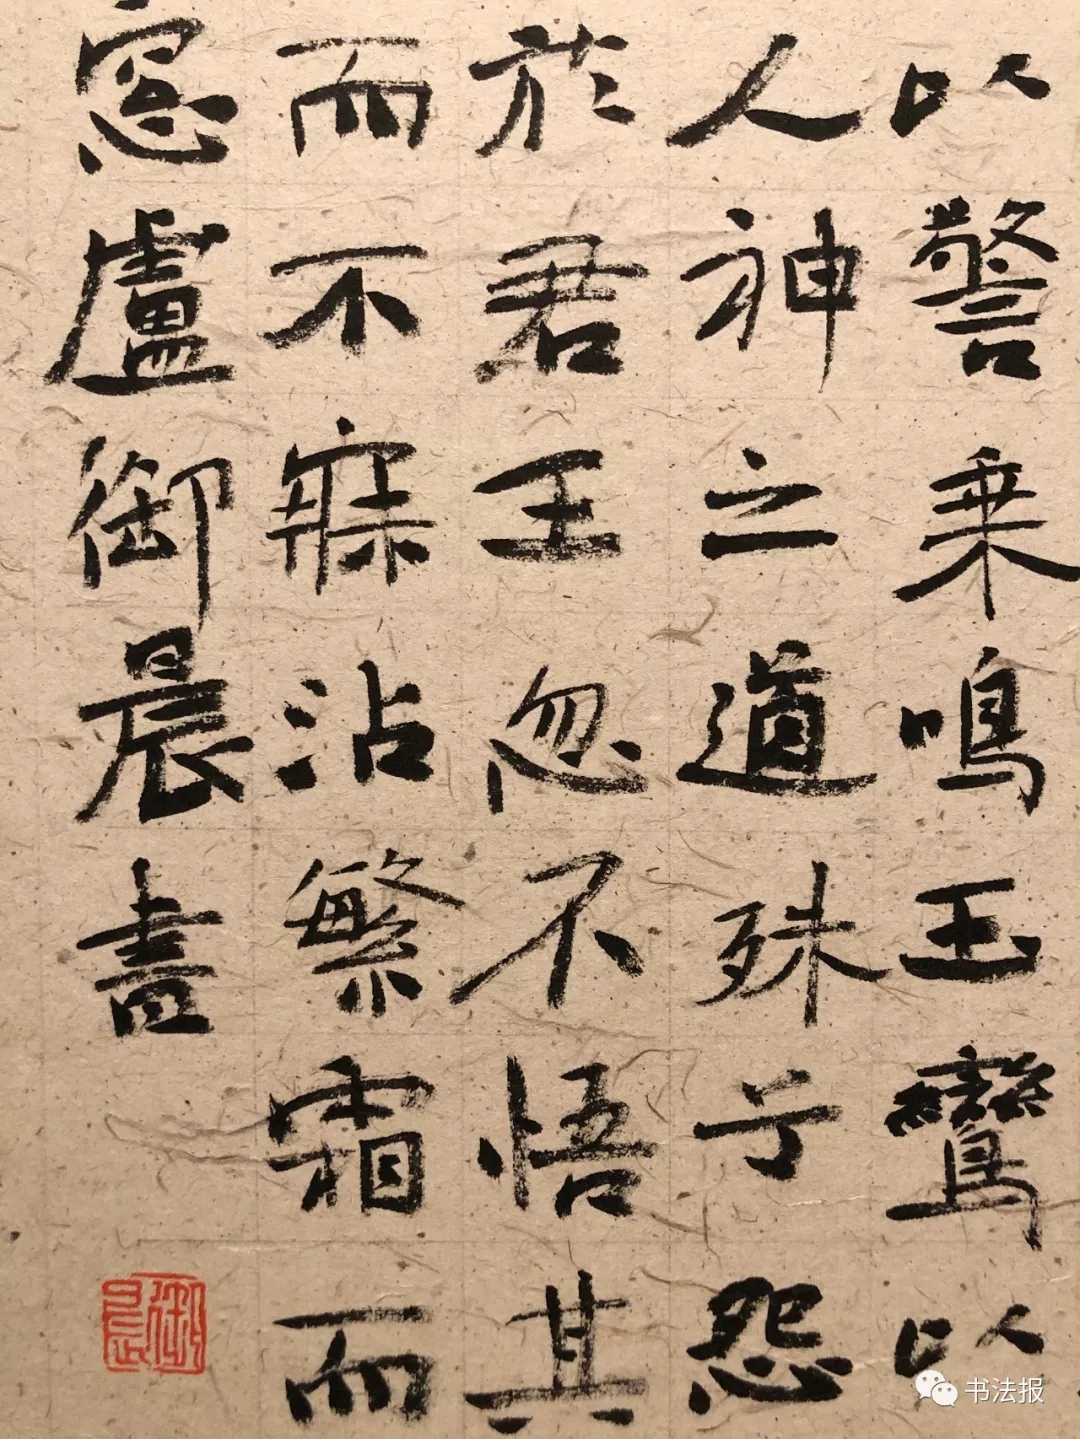 以警乗鳴玉鸞以
人神之道殊兮怨
於君王忽不悟其
而不寐沾繁霜而
窓盧御晨書
御晨
书法报